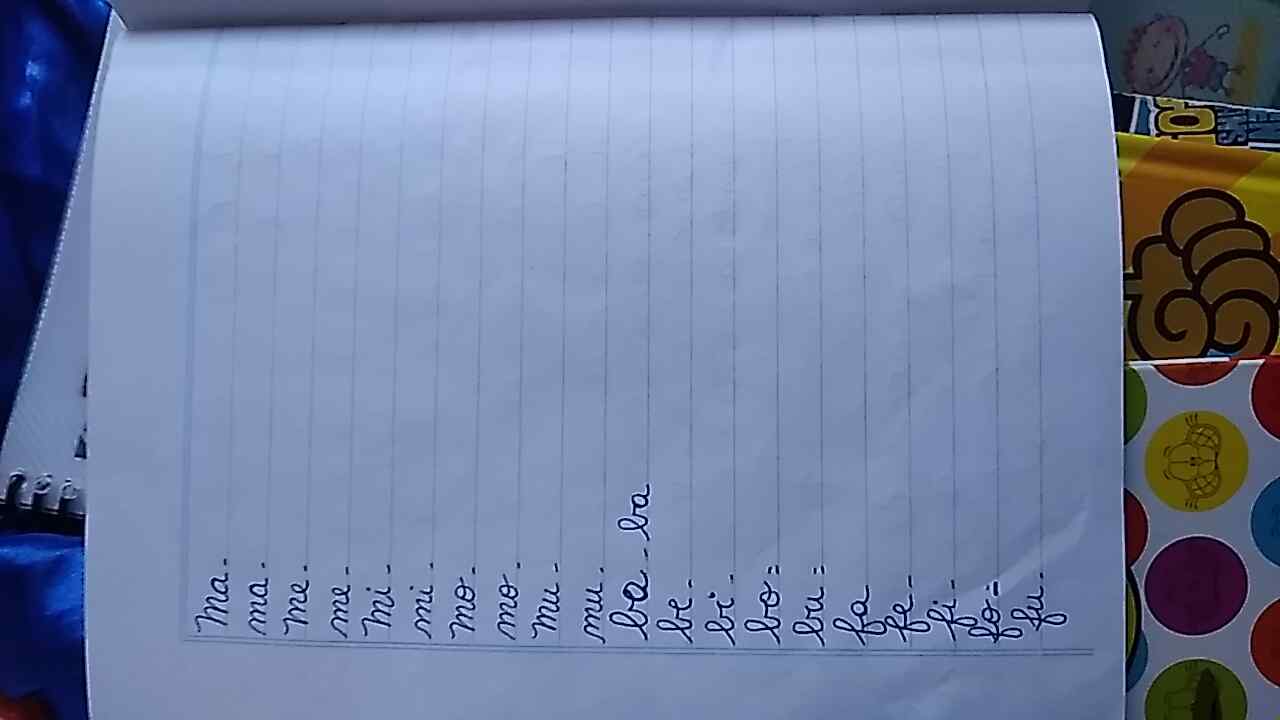 Ma -
ma -
Me -
me -
Mi -
mi -
Mo -
mo -
Mu -
mu -
ba - ba
be -
bi -
bo =
bu =
fa
fe -
fi -
fo =
fu -